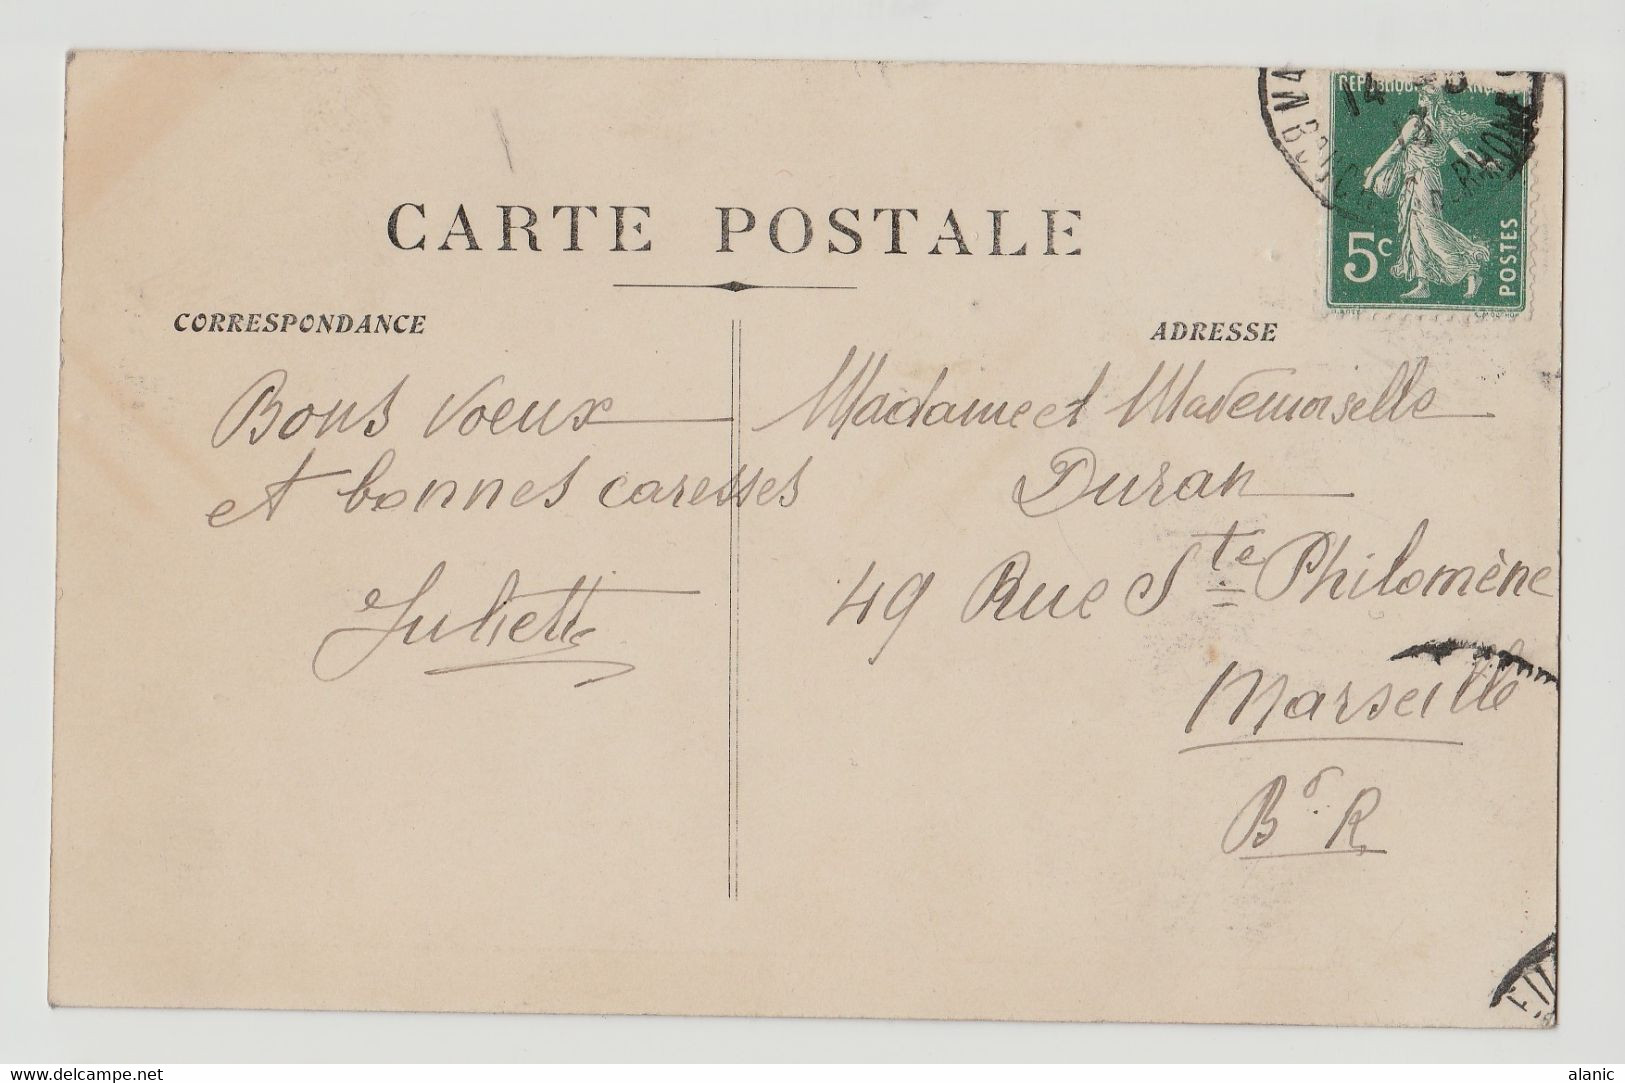 CARTE POSTALE
CORRESPONDANCE
ADRESSE
RÉPUBLIQUE FRANÇAISE
5c
POSTES
14
BOUCHES-DU-RHONE
Bons voeux
et bonnes caresses
Juliette
Madame et Mademoiselle
Duran
49 Rue Ste Philomène
Marseille
B. R
www.delcampe.net
alanic